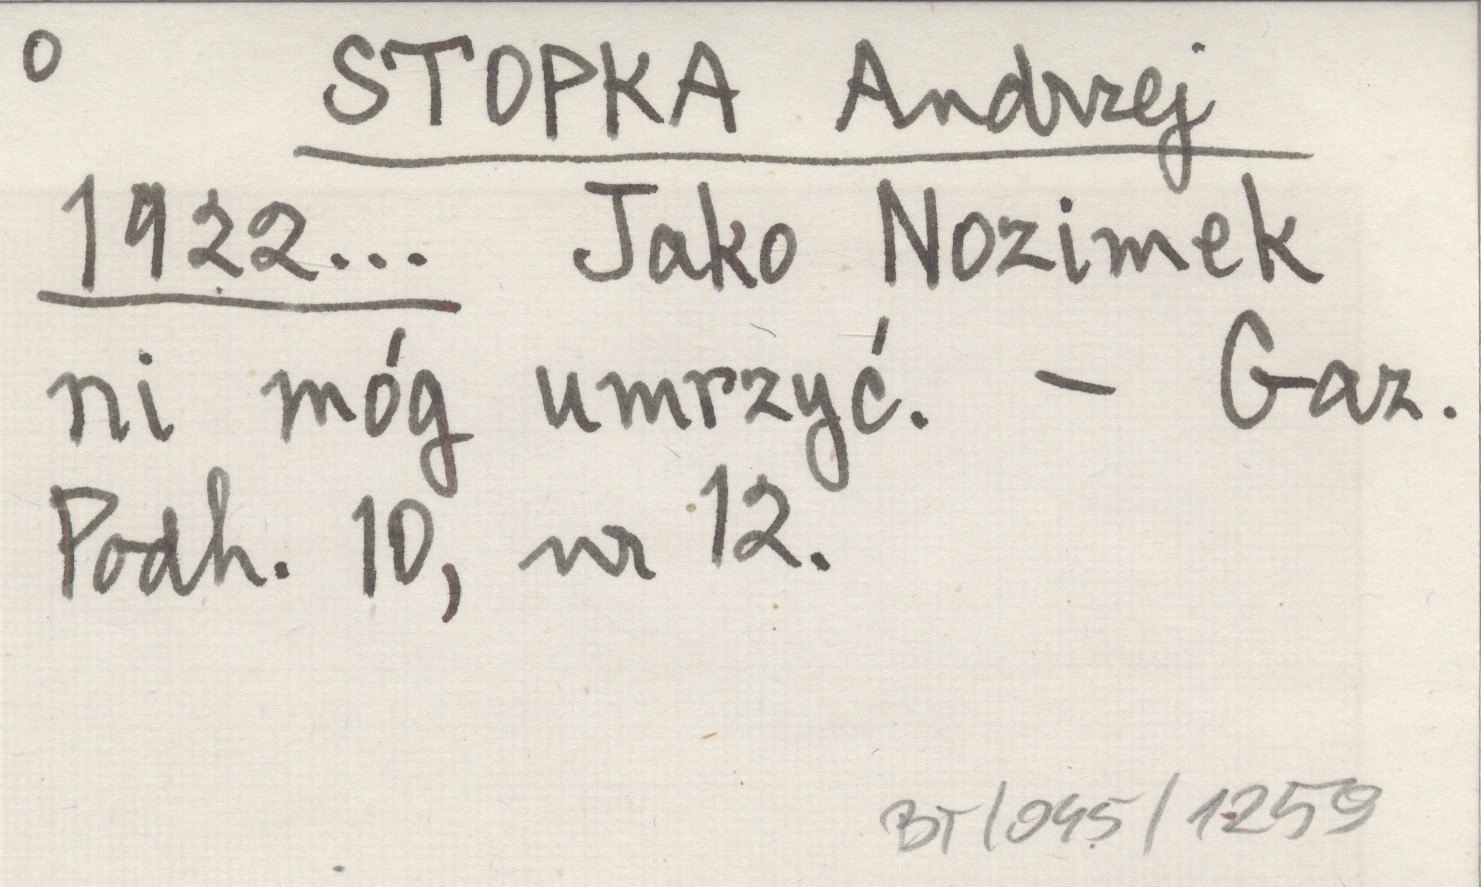 O STOPKA Andrzej
1922... Jako Nozimek
ni móg umrzyć. – Gaz.
Podh. 10, nr 12.
BT/045/1259